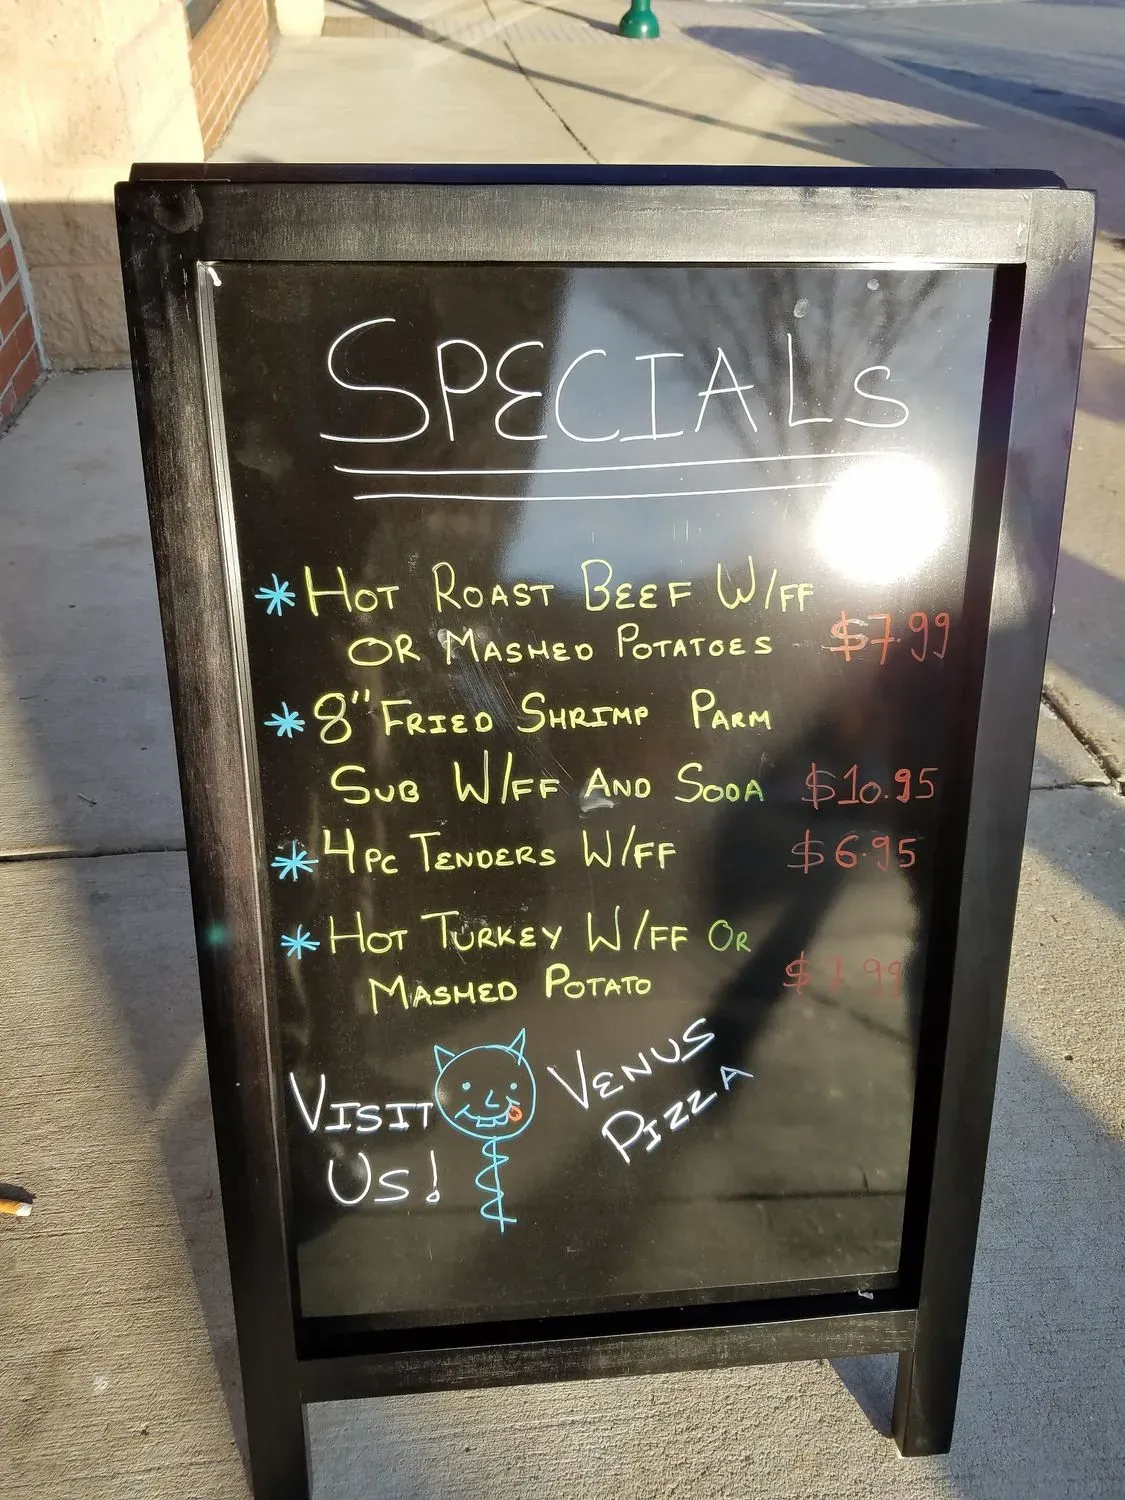 SPECIALS
* HOT ROAST BEEF W/FF
OR MASHED POTATOES $7.99
* 8" FRIED SHRIMP PARM
SUB W/FF AND SODA $10.95
* 4PC TENDERS W/FF $6.95
* HOT TURKEY W/FF OR
MASHED POTATO $7.99
VISIT
US!
VENUS
PIZZA